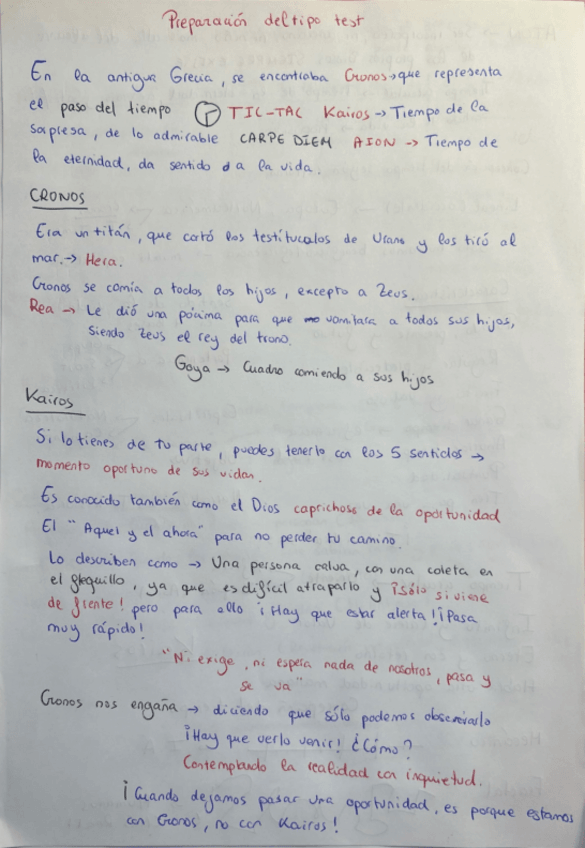 Preparación del tipo test
En la antigua Grecia, se encontraba Cronos→que representa
el paso del tiempo TIC-TAC Kairos → Tiempo de la
sorpresa, de lo admirable CARPE DIEM AION → Tiempo de
la eternidad, da sentido a la vida.
CRONOS
Era un titán, que cortó los testítucalos de Urano y los tiró al
mar.→ Hera.
Cronos se comía a todos los hijos, excepto a Zeus.
Rea → Le dió una pócima para que vomitara a todos sus hijos,
siendo Zeus el rey del trono.
Goya → Cuadro comiendo a sus hijos
Kairos
Si lo tienes de tu parte, puedes tenerlo con los 5 sentidos →
momento oportuno de sus vidas.
Es conocido también como el Dios caprichoso de la oportunidad
El "Aquel y el ahora" para no perder tu camino.
Lo describen como → Una persona calva, con una coleta en
el fleguillo, ya que es difícil atraparlo y ¡sólo si viene
de frente! pero para ello ¡Hay que estar alerta! ¡Pasa
muy rápido!
"Ni exige, ni espera nada de nosotros, pasa y
se va"
Cronos nos engaña → diciendo que sólo podemos observarlo
¡Hay que verlo venir! ¿Cómo?
Contemplando la realidad con inquietud.
¡Cuando dejamos pasar una oportunidad, es porque estamos
con Cronos, no con Kairos!